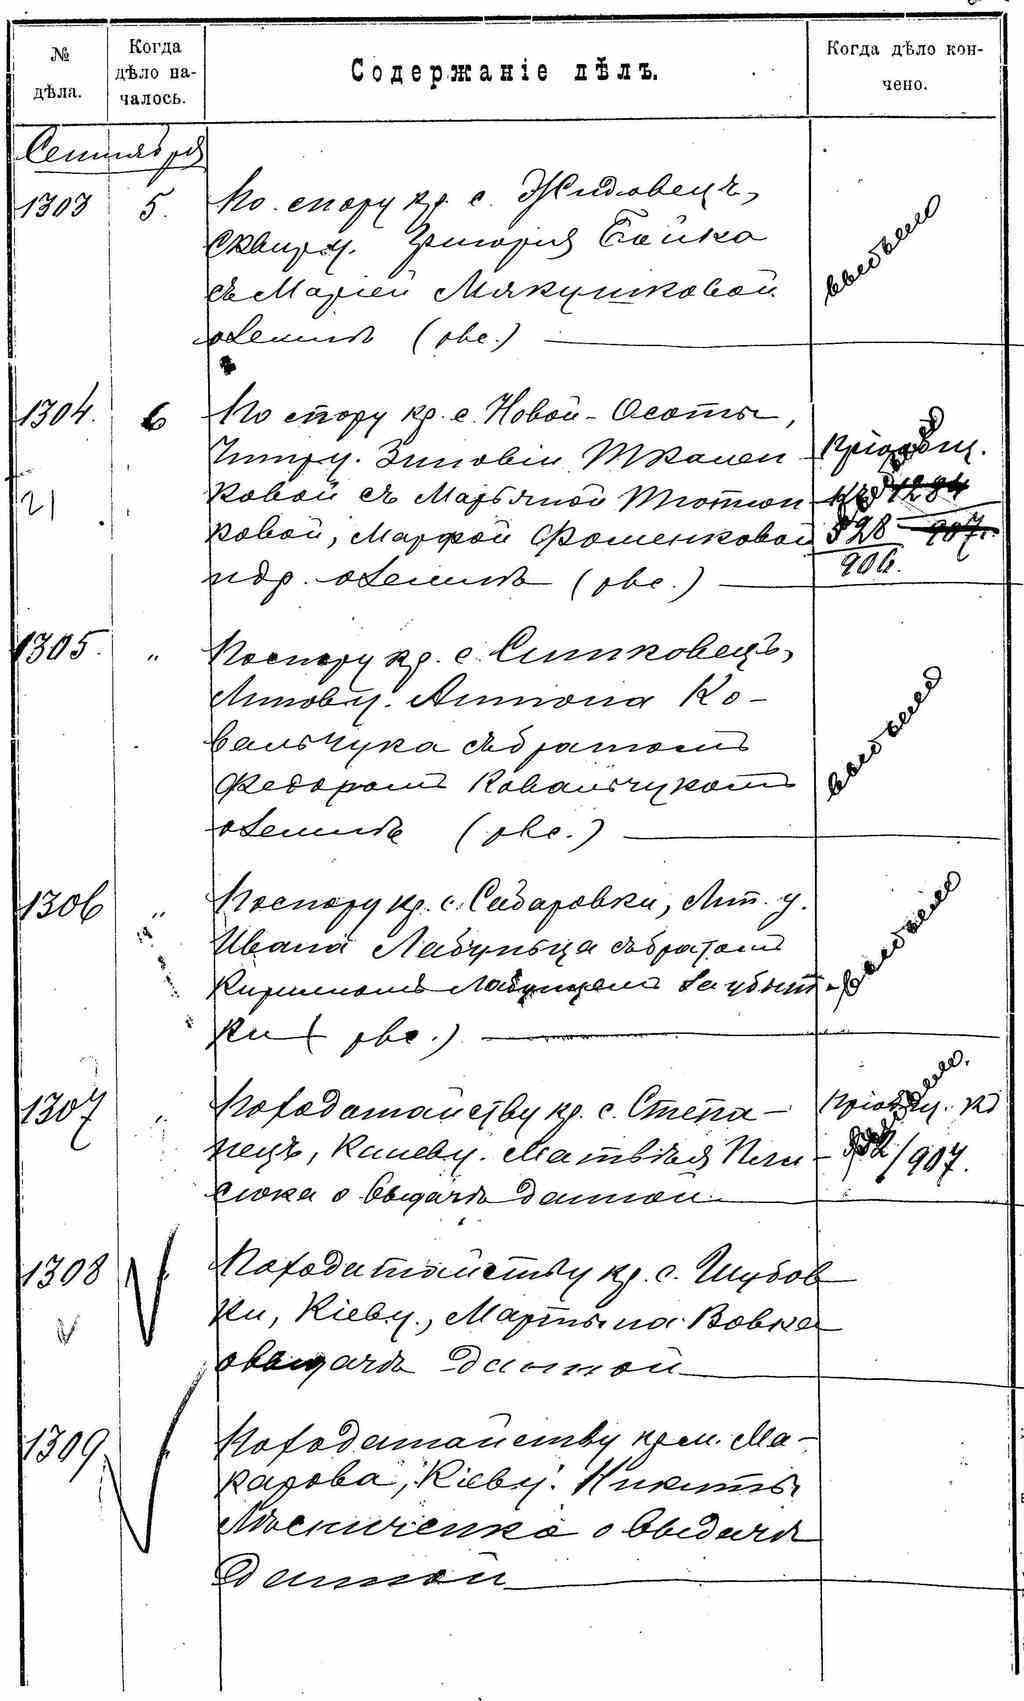 № дѣла.
Когда дѣло на-
чалось.
Содержаніе дѣлъ.
Когда дѣло кон-
чено.
Сентября
1303
5.
По спору кр. с. Жидовецъ,
Сквир. у. Григорія Бойка
съ Маріей Мякушковой
о землѣ (рвс.)
выбыло
1304.
6
21
По спору кр. с. Новой-Осоты,
Чигир. у. Зиновіи Ткален-
ковой съ Марьяной Тютюн-
ковой, Марфой Фоменковой
и др. о землѣ (рвс.)
Пріобщ.
къ 1284
528 907.
906.
1305.
"
По спору кр. с. Ситковецъ,
Липов. у. Антона Ко-
вальчука съ братомъ
Федоромъ Ковальчукомъ
о землѣ (рвс.)
выбыло
1306
"
По спору кр. с. Сабаровки, Лип. у.
Ивана Лабунца съ братомъ
Кириломъ Лабунцемъ за убыт-
ки (рвс.)
выбыло
1307
"
По ходатайству кр. с. Степа-
нецъ, Канев. у. Матвѣя
о выдачѣ данной
Пріобщ. къ
/907.
1308
"
По ходатайству кр. с. Шубов
ки, Кіев. у., Мартына Вовка
о выдачѣ данной
1309
"
По ходатайству кр. м. Ма-
карова, Кіев. у. Никиты
о выдачѣ
данной